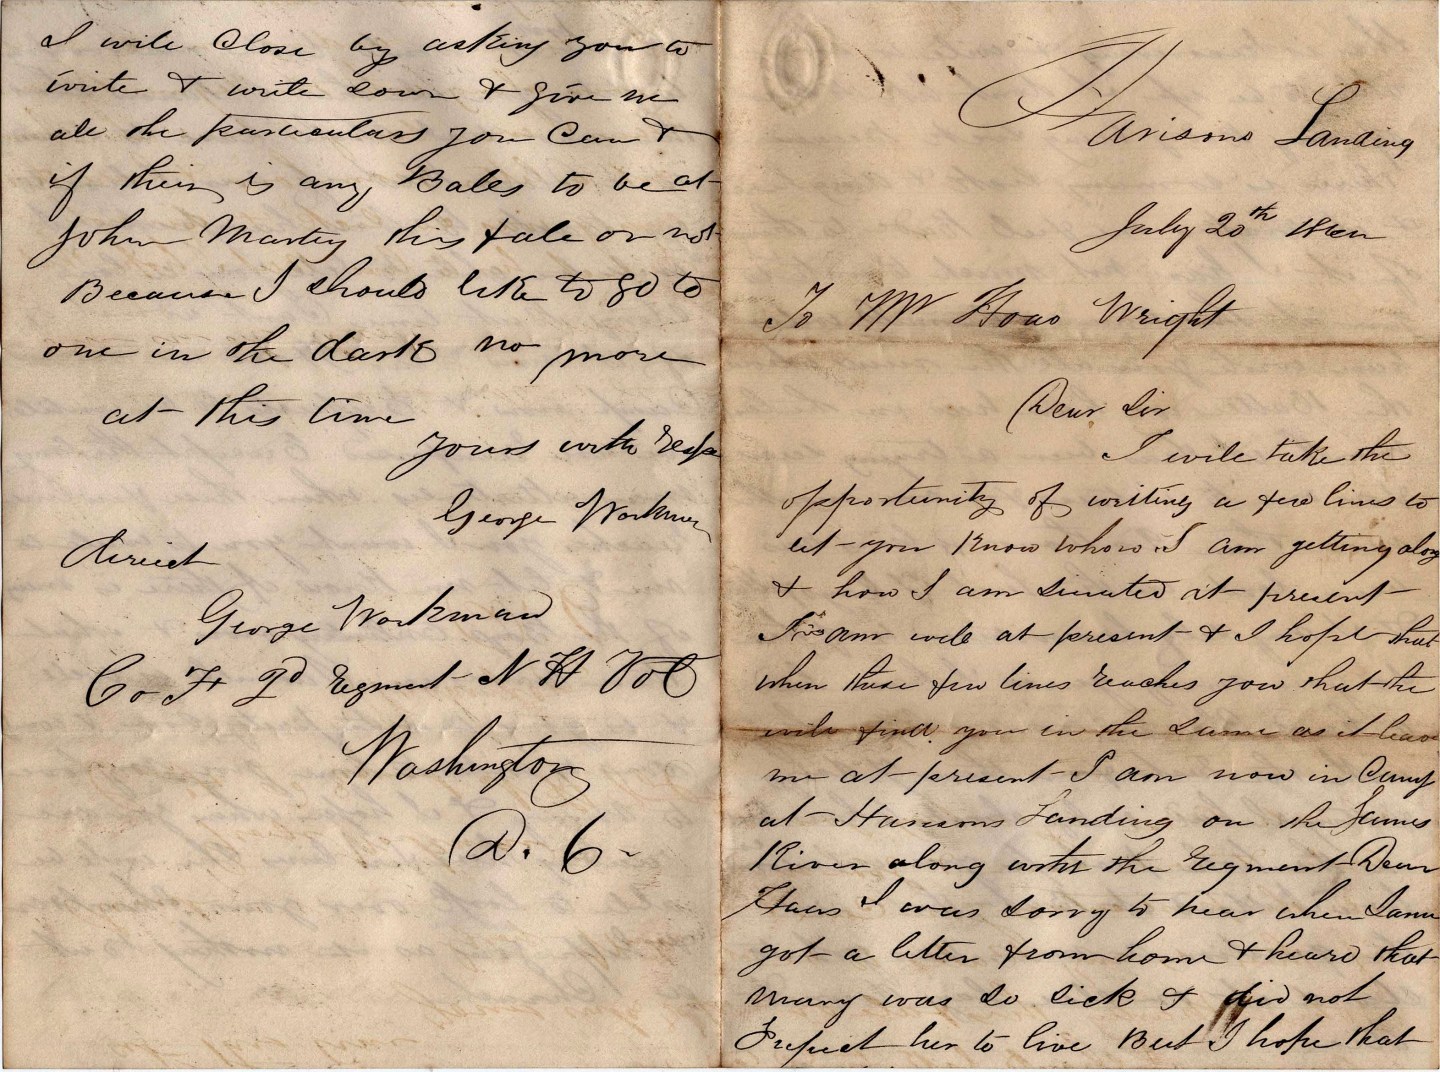 Harisons Landing
July 20th 1862
To Mr Haas Wright
Dear Sir
I wile take the
opportunity of writing a few lines to
let you Know whow I am getting along
& how I am situated at present
I am wile at present & I hope that
when these few lines reaches you that the
wile find you in the same as it leave
me at present I am now in Camp
at Harisons Landing on the James
River along with the regment Dear
Haas I was sorry to hear when Sam
got a letter from home & heard that
Mary was so sick & did not
Expect her to live But I hope that
I wile Close by asking you to
write & write soon & give me
all the particulars you Can &
if their is any Bales to be at
John Martey this fale or not
Because I should like to go to
one in the dark no more
at this time
yours with Resp
George Workman
direct
George Workman
Co F 2d Regment N H Vol
Washington
D. C